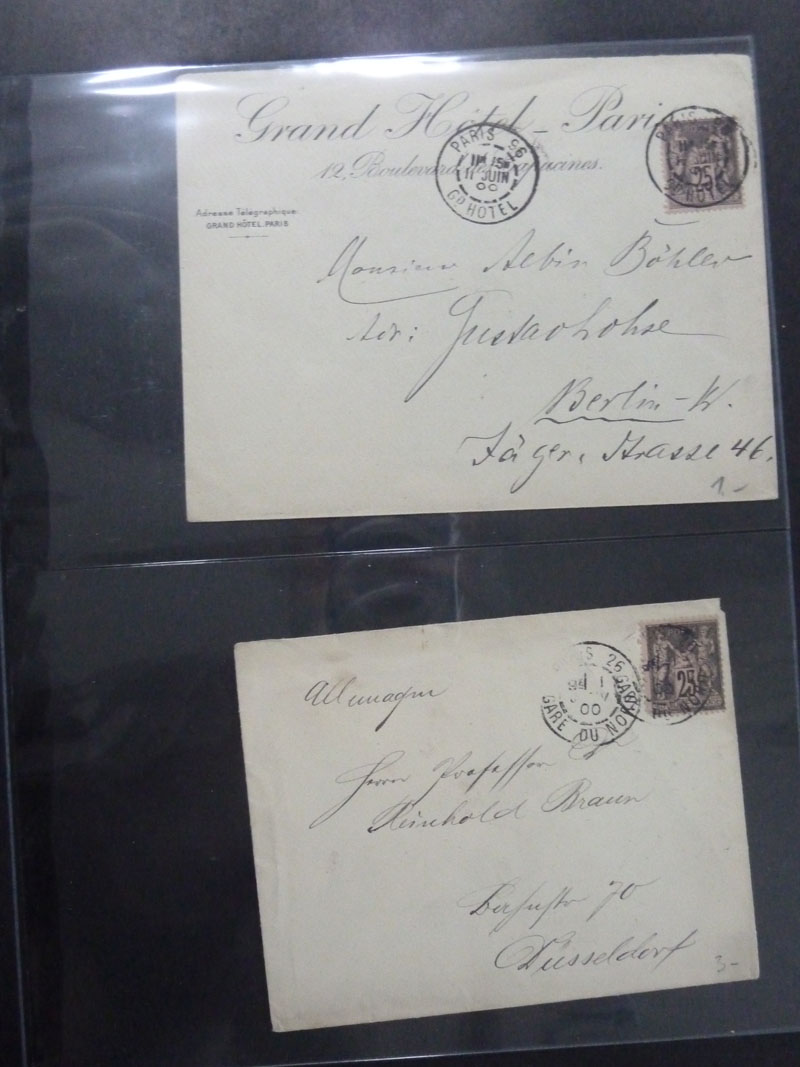 Grand Hôtel - Paris
12, Boulevard des Capucines.
PARIS 96
11 JUIN
00
Gd HOTEL
25
Gd HOTEL
Adresse Télégraphique
GRAND HÔTEL. PARIS
Monsieur Albin Böhler
Adr: Gustav Lohse
Berlin-W.
Jäger-Strasse 46.
1-
PARIS 26
00
GARE DU NORD
25
Allemagne
Herrn Professor
Reinhold Braun
70
Düsseldorf
3-